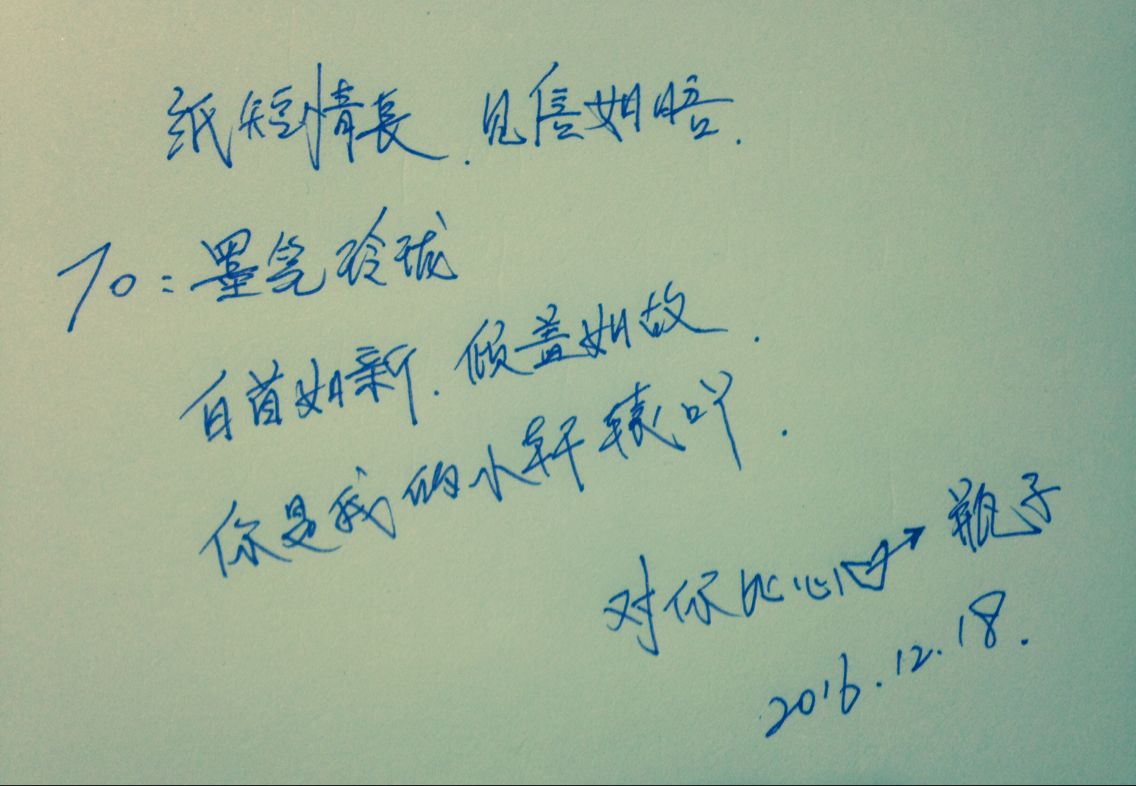 纸短情長.见信如晤.
To:墨笔玲珑
白首如新.倾盖如故.
你是我的小轩辕吖.
对你比心 瓶子
2016.12.18.